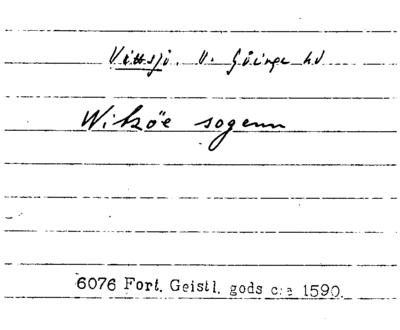 Vittsjö. V. Göinge hd
Witzöe sogenn
6076 Fort. Geistl. gods c:a 1590.